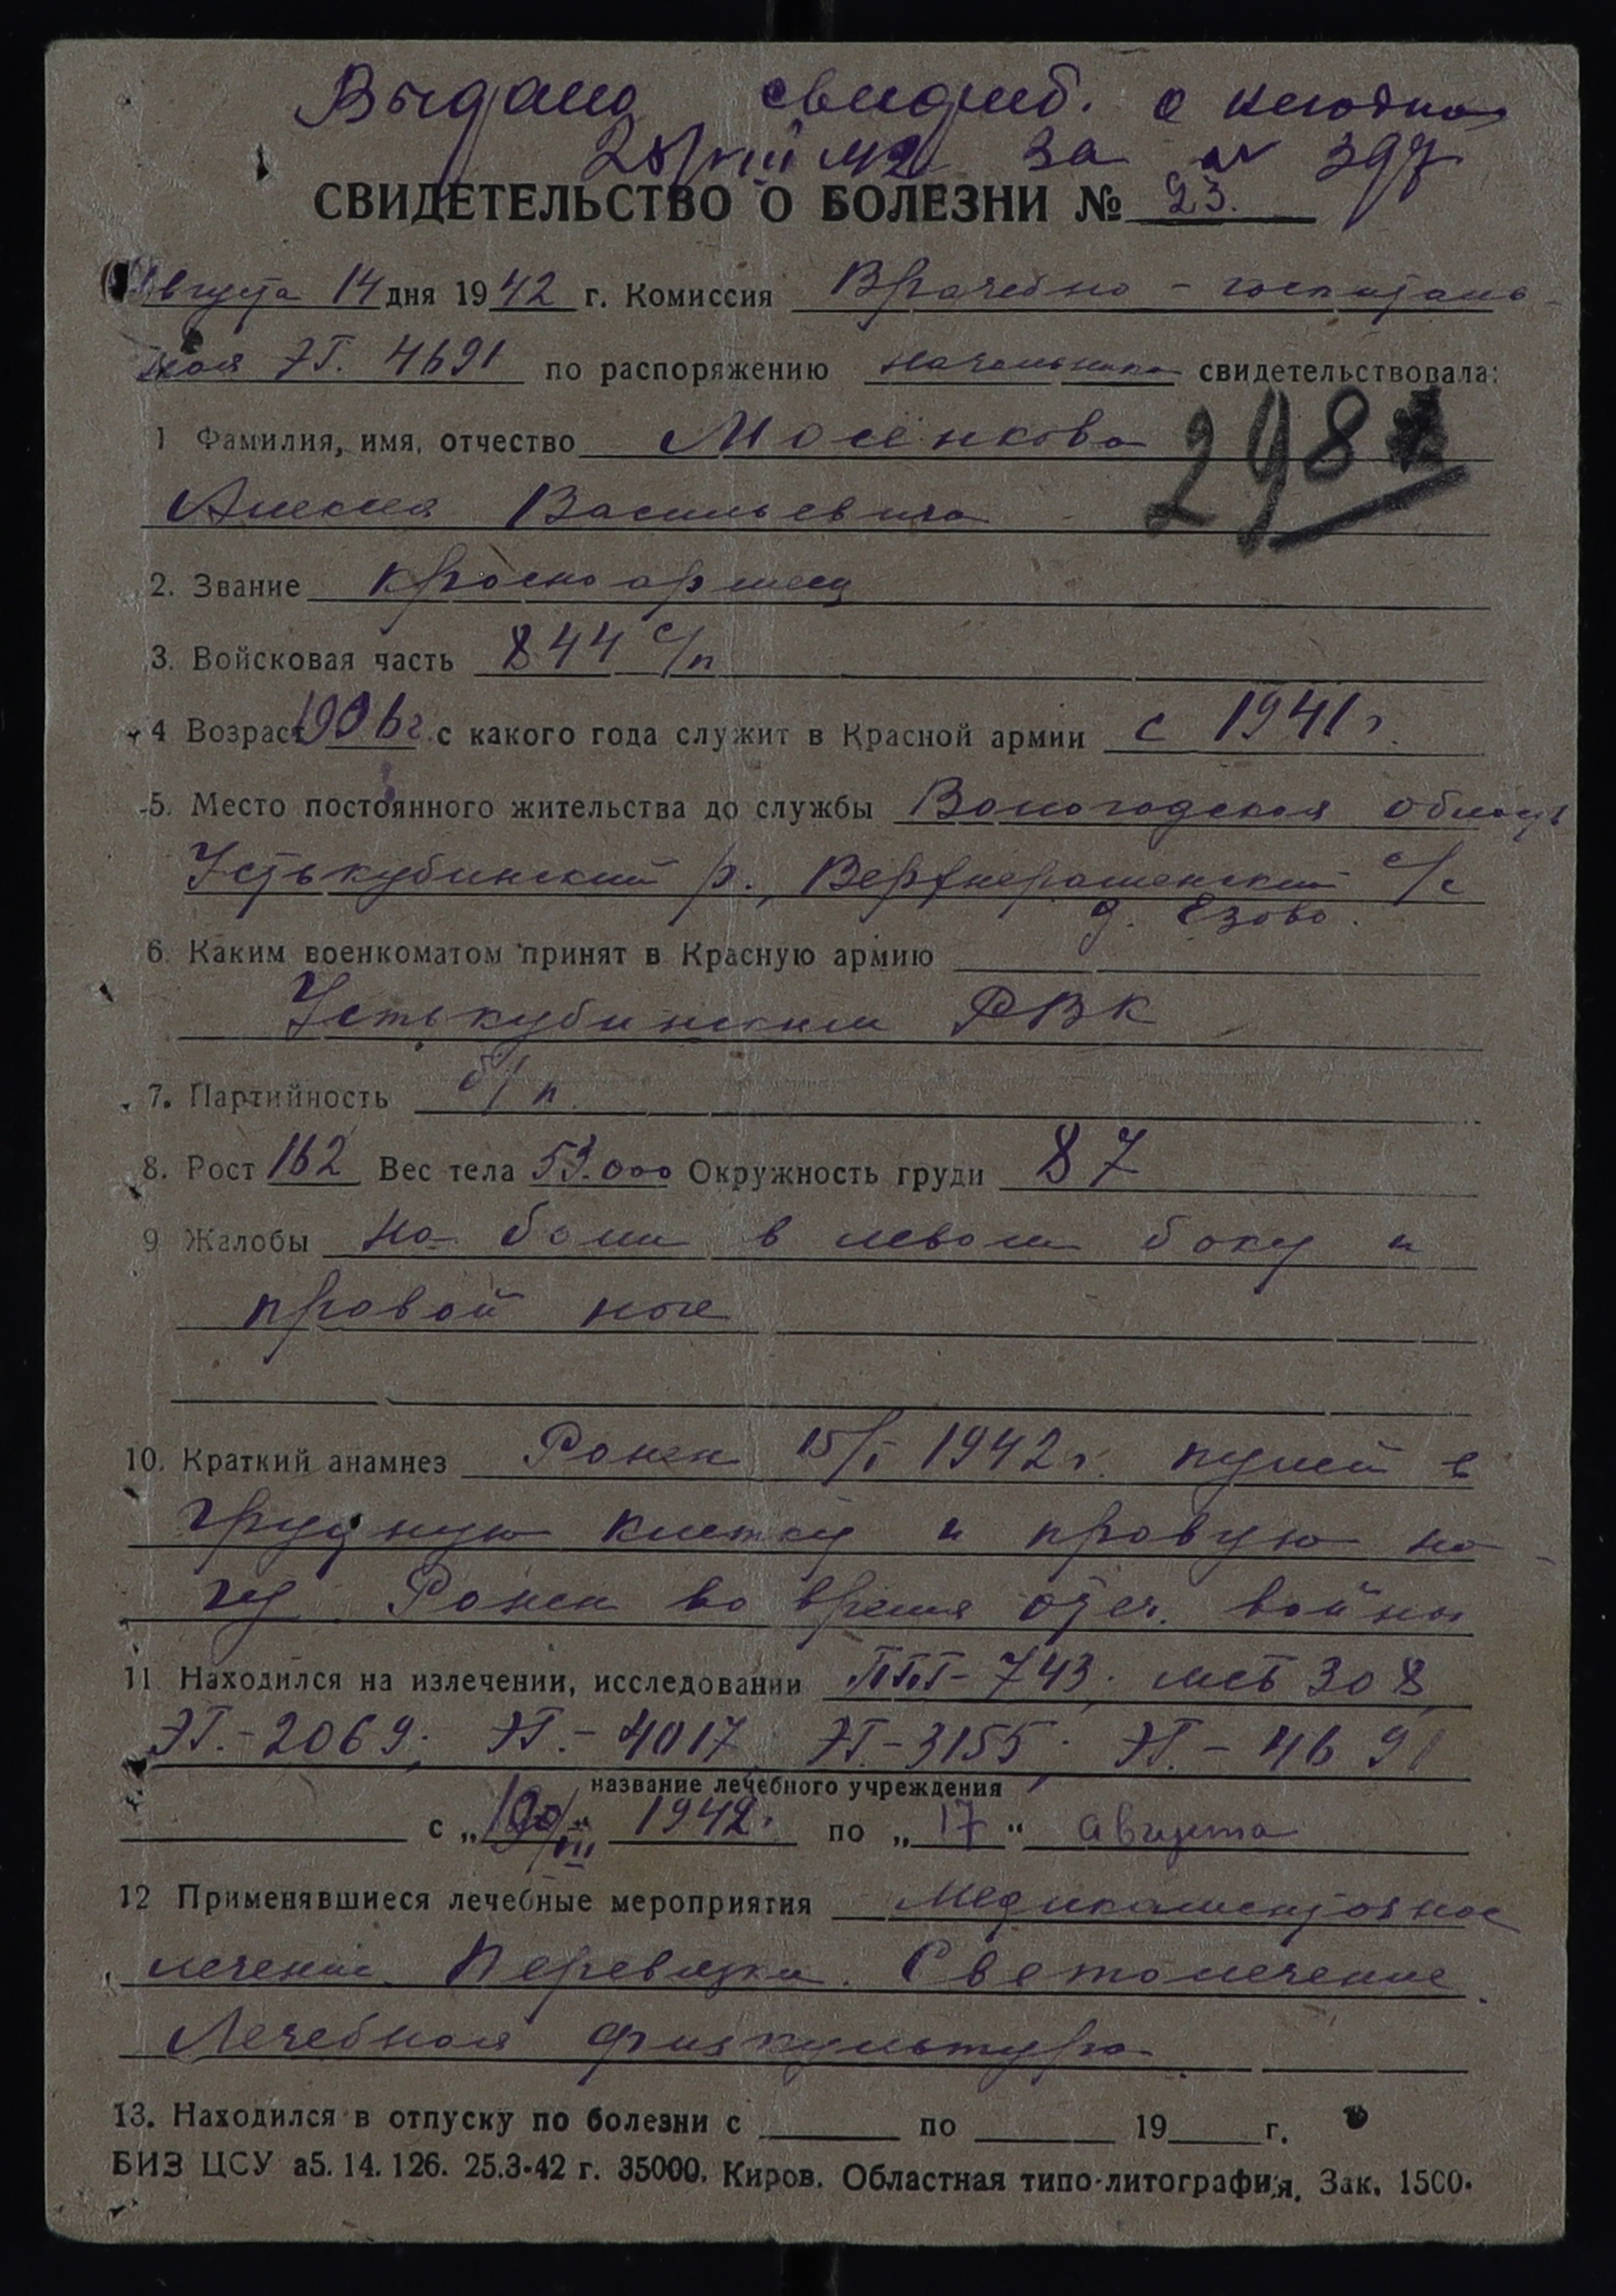 Выдано свидет. о негодно
28/VIII 42 за № 397
СВИДЕТЕЛЬСТВО О БОЛЕЗНИ № 23.
Августа 14 дня 1942 г. Комиссия Врачебно - госпиталь-
ная ЭГ. 4691 по распоряжению начальника свидетельствовала:
1 Фамилия, имя, отчество Мосёнкова
298
Алексея Васильевича
2. Звание красноармеец
3. Войсковая часть 844 с/п
4 Возраст 1906 г. с какого года служит в Красной армии с 1941 г.
5. Место постоянного жительства до службы Вологодская область
Устькубинский р., Верхнераменский с/с
д. Езово.
6. Каким военкоматом принят в Красную армию
Устькубинским РВК
7. Партийность б/п
8. Рост 162 Вес тела 53.000 Окружность груди 87
9 Жалобы на боли в левом боку и
правой ноге
10. Краткий анамнез Ранен 15/I 1942 г. пулей в
грудную клетку и правую но-
гу. Ранен во время отеч. войны
11 Находился на излечении, исследовании ППГ-743. мсб 308
ЭГ.-2069; ЭГ.-4017 ЭГ-3155; ЭГ.-4691
название лечебного учреждения
с „ /III “ 1942. по „17“ августа
12 Применявшиеся лечебные мероприятия Медикаментозное
лечение. Перевязки. Светолечение.
Лечебная физкультура
13. Находился в отпуску по болезни с по 19 г.
БИЗ ЦСУ а5. 14. 126. 25.3-42 г. 35000. Киров. Областная типо-литография. Зак. 1500.